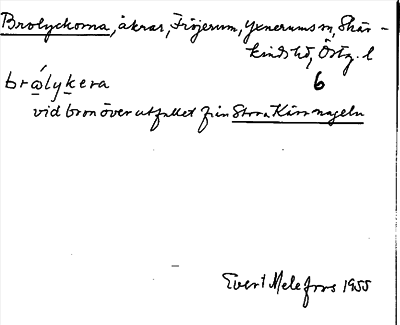 Brolyckorna, åkrar, Fröjerum, Yxnerums sn, Skär-
kinds hd, Östg. l
brώ̲lyk̲era 6
vid bron över utfallet från Stora Kärnnageln
Evert Melefors 1955